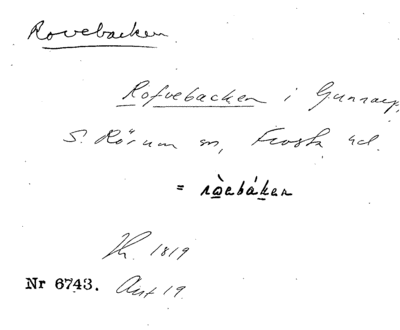 Rovebacken
Rofvebacken i Gunnarp,
S. Rörum sn, Frosta hd.
= ròebáken
1819
Nr 6743. Ant 19.